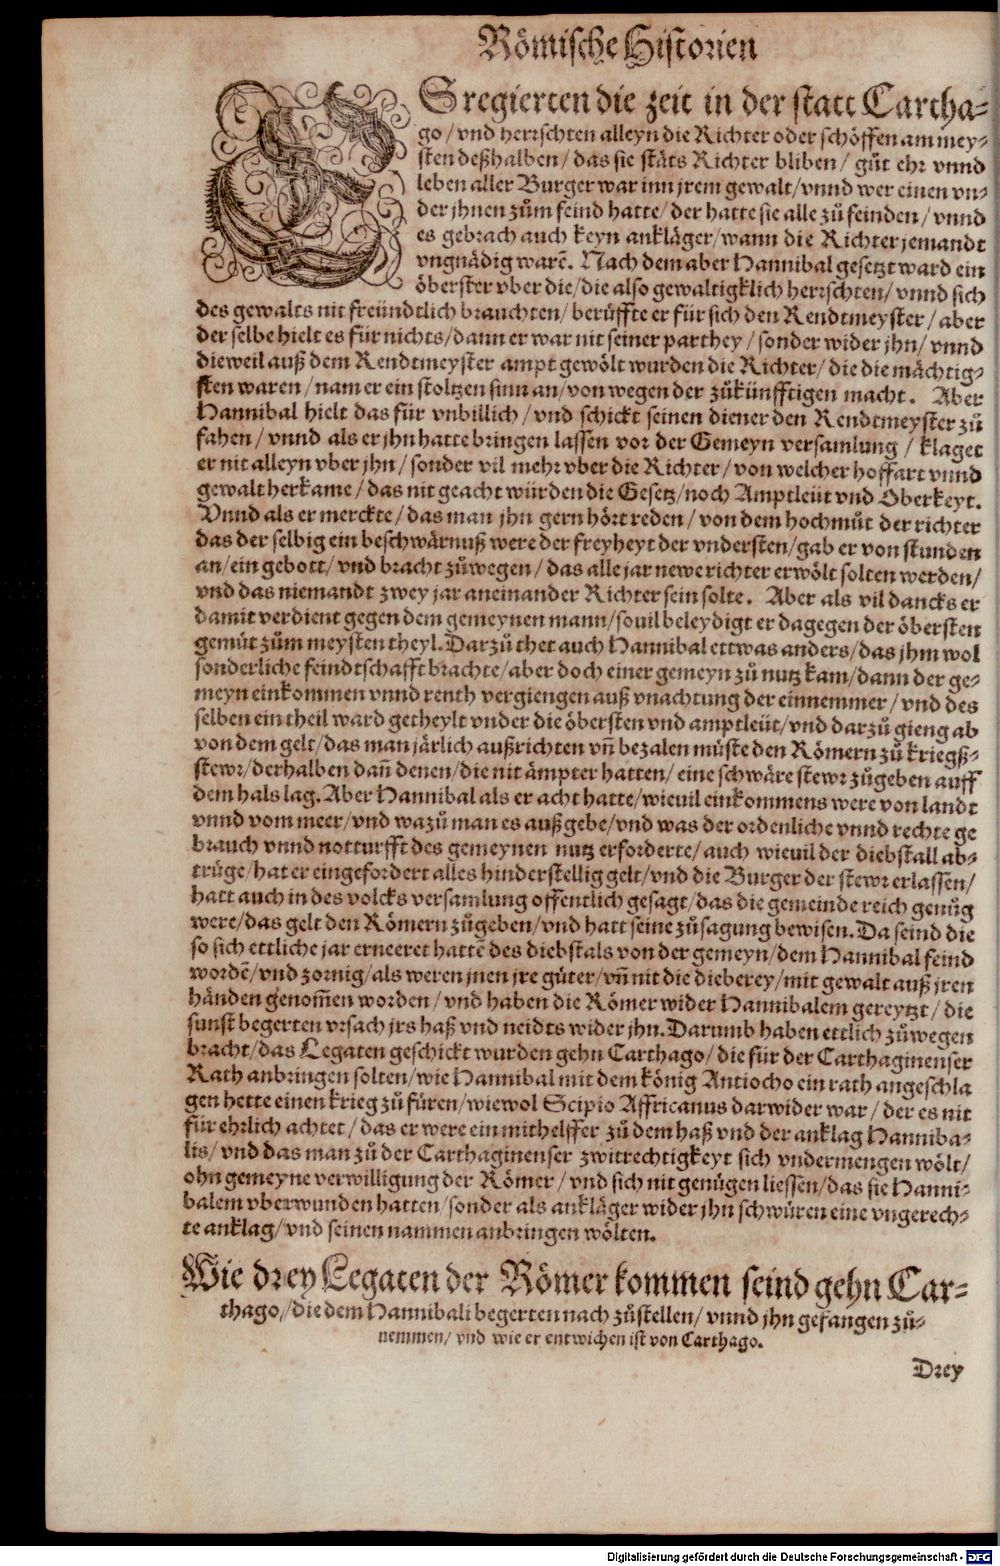 Römische Historien
ES regierten die zeit in der statt Cartha-
go / vnd herrschten alleyn die Richter oder schöffen am mey-
sten deßhalben / das sie stäts Richter bliben / gůt ehr vnnd
leben aller Burger war inn jrem gewalt / vnnd wer einen vn-
der jhnen zům feind hatte / der hatte sie alle zů feinden / vnnd
es gebrach auch keyn ankläger / wann die Richter jemandt
vngnädig warē. Nach dem aber Hannibal gesetzt ward ein
öberster vber die / die also gewaltigklich herrschten / vnnd sich
des gewalts nit freündtlich brauchten / berüffte er für sich den Rendtmeyster / aber
der selbe hielt es für nichts / dann er war nit seiner parthey / sonder wider jhn / vnnd
dieweil auß dem Rendtmeyster ampt gewölt wurden die Richter / die die mächtig-
sten waren / nam er ein stoltzen sinn an / von wegen der zůkünfftigen macht. Aber
Hannibal hielt das für vnbillich / vnd schickt seinen diener den Rendtmeyster zů
fahen / vnnd als er jhn hatte bringen lassen vor der Gemeyn versamlung / klaget
er nit alleyn vber jhn / sonder vil mehr vber die Richter / von welcher hoffart vnnd
gewalt herkame / das nit geacht würden die Gesetz / noch Amptleüt vnd Oberkeyt.
Vnnd als er merckte / das man jhn gern hört reden / von dem hochmůt der richter
das der selbig ein beschwärnuß were der freyheyt der vndersten / gab er von stunden
an / ein gebott / vnd bracht zůwegen / das alle jar newe richter erwölt solten werden /
vnd das niemandt zwey jar aneinander Richter sein solte. Aber als vil dancks er
damit verdient gegen dem gemeynen mann / souil beleydigt er dagegen der öbersten
gemüt zům meysten theyl. Darzů thet auch Hannibal ettwas anders / das jhm wol
sonderliche feindtschafft brachte / aber doch einer gemeyn zů nutz kam / dann der ge-
meyn einkommen vnnd renth vergiengen auß vnachtung der einnemmer / vnd des
selben ein theil ward getheylt vnder die öbersten vnd amptleüt / vnd darzů gieng ab
von dem gelt / das man järlich außrichten vñ bezalen můste den Römern zů kriegß-
stewr / derhalben dañ denen / die nit ämpter hatten / eine schwäre stewr zůgeben auff
dem hals lag. Aber Hannibal als er acht hatte / wieuil einkommens were von landt
vnnd vom meer / vnd wazů man es auß gebe / vnd was der ordenliche vnnd rechte ge
brauch vnnd notturfft des gemeynen nutz erforderte / auch wieuil der diebstall ab-
trüge / hat er eingefordert alles hinderstellig gelt / vnd die Burger der stewr erlassen /
hatt auch in des volcks versamlung offentlich gesagt / das die gemeinde reich genůg
were / das gelt den Römern zůgeben / vnd hatt seine zůsagung bewisen. Da seind die
so sich ettliche jar erneeret hattē des diebstals von der gemeyn / dem Hannibal feind
wordē / vnd zornig / als weren jnen jre güter / vñ nit die dieberey / mit gewalt auß jren
händen genom̃en worden / vnd haben die Römer wider Hannibalem gereytzt / die
sunst begerten vrsach jrs haß vnd neidts wider jhn. Darumb haben ettlich zůwegen
bracht / das Legaten geschickt wurden gehn Carthago / die für der Carthaginenser
Rath anbringen solten / wie Hannibal mit dem könig Antiocho ein rath angeschla
gen hette einen krieg zů füren / wiewol Scipio Affricanus darwider war / der es nit
für ehrlich achtet / das er were ein mithelffer zů dem haß vnd der anklag Hanniba-
lis / vnd das man zů der Carthaginenser zwitrechtigkeyt sich vndermengen wölt /
ohn gemeyne verwilligung der Römer / vnd sich nit genügen liessen / das sie Hanni-
balem vberwunden hatten / sonder als ankläger wider jhn schwüren eine vngerech-
te anklag / vnd seinen nammen anbringen wölten.
Wie drey Legaten der Römer kommen seind gehn Car-
thago / die dem Hannibali begerten nach zůstellen / vnnd jhn gefangen zů-
nemmen / vnd wie er entwichen ist von Carthago.
Drey
Digitalisierung gefördert durch die Deutsche Forschungsgemeinschaft - DFG